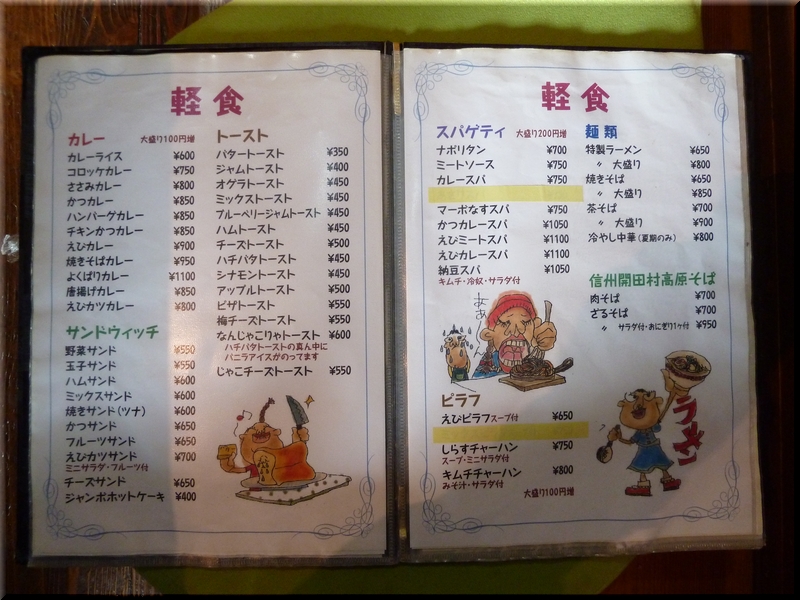 軽食
カレー 大盛り100円増
カレーライス ¥600
コロッケカレー ¥750
ささみカレー ¥800
かつカレー ¥850
ハンバーグカレー ¥850
チキンかつカレー ¥850
えびカレー ¥900
焼きそばカレー ¥950
よくばりカレー ¥1100
唐揚げカレー ¥850
えびカツカレー ¥800
サンドウィッチ
野菜サンド ¥550
玉子サンド ¥550
ハムサンド ¥600
ミックスサンド ¥600
焼きサンド(ツナ) ¥600
かつサンド ¥650
フルーツサンド ¥650
えびカツサンド ¥700
ミニサラダ・フルーツ付
チーズサンド ¥650
ジャンボホットケーキ ¥400
トースト
バタートースト ¥350
ジャムトースト ¥400
オグラトースト ¥450
ミックストースト ¥450
ブルーベリージャムトースト ¥450
ハムトースト ¥450
チーズトースト ¥500
ハチバタトースト ¥450
シナモントースト ¥450
アップルトースト ¥500
ピザトースト ¥550
梅チーズトースト ¥550
なんじゃこりゃトースト ¥600
ハチバタトーストの真ん中に
バニラアイスがのってます
じゃこチーズトースト ¥550
軽食
スパゲティ 大盛り200円増
ナポリタン ¥700
ミートソース ¥750
カレースパ ¥750
マーボなすスパ ¥750
かつカレースパ ¥1050
えびミートスパ ¥1100
えびカレースパ ¥1100
納豆スパ ¥1050
キムチ・冷奴・サラダ付
ピラフ
えびピラフスープ付 ¥650
しらすチャーハン ¥750
スープ・ミニサラダ付
キムチチャーハン ¥800
みそ汁・サラダ付
大盛り100円増
麺類
特製ラーメン ¥650
〃 大盛り ¥800
焼きそば ¥650
〃 大盛り ¥850
茶そば ¥700
〃 大盛り ¥900
冷やし中華(夏期のみ) ¥800
信州開田村高原そば
肉そば ¥700
ざるそば ¥700
〃 サラダ付・おにぎり1ヶ付 ¥950
ラーメン